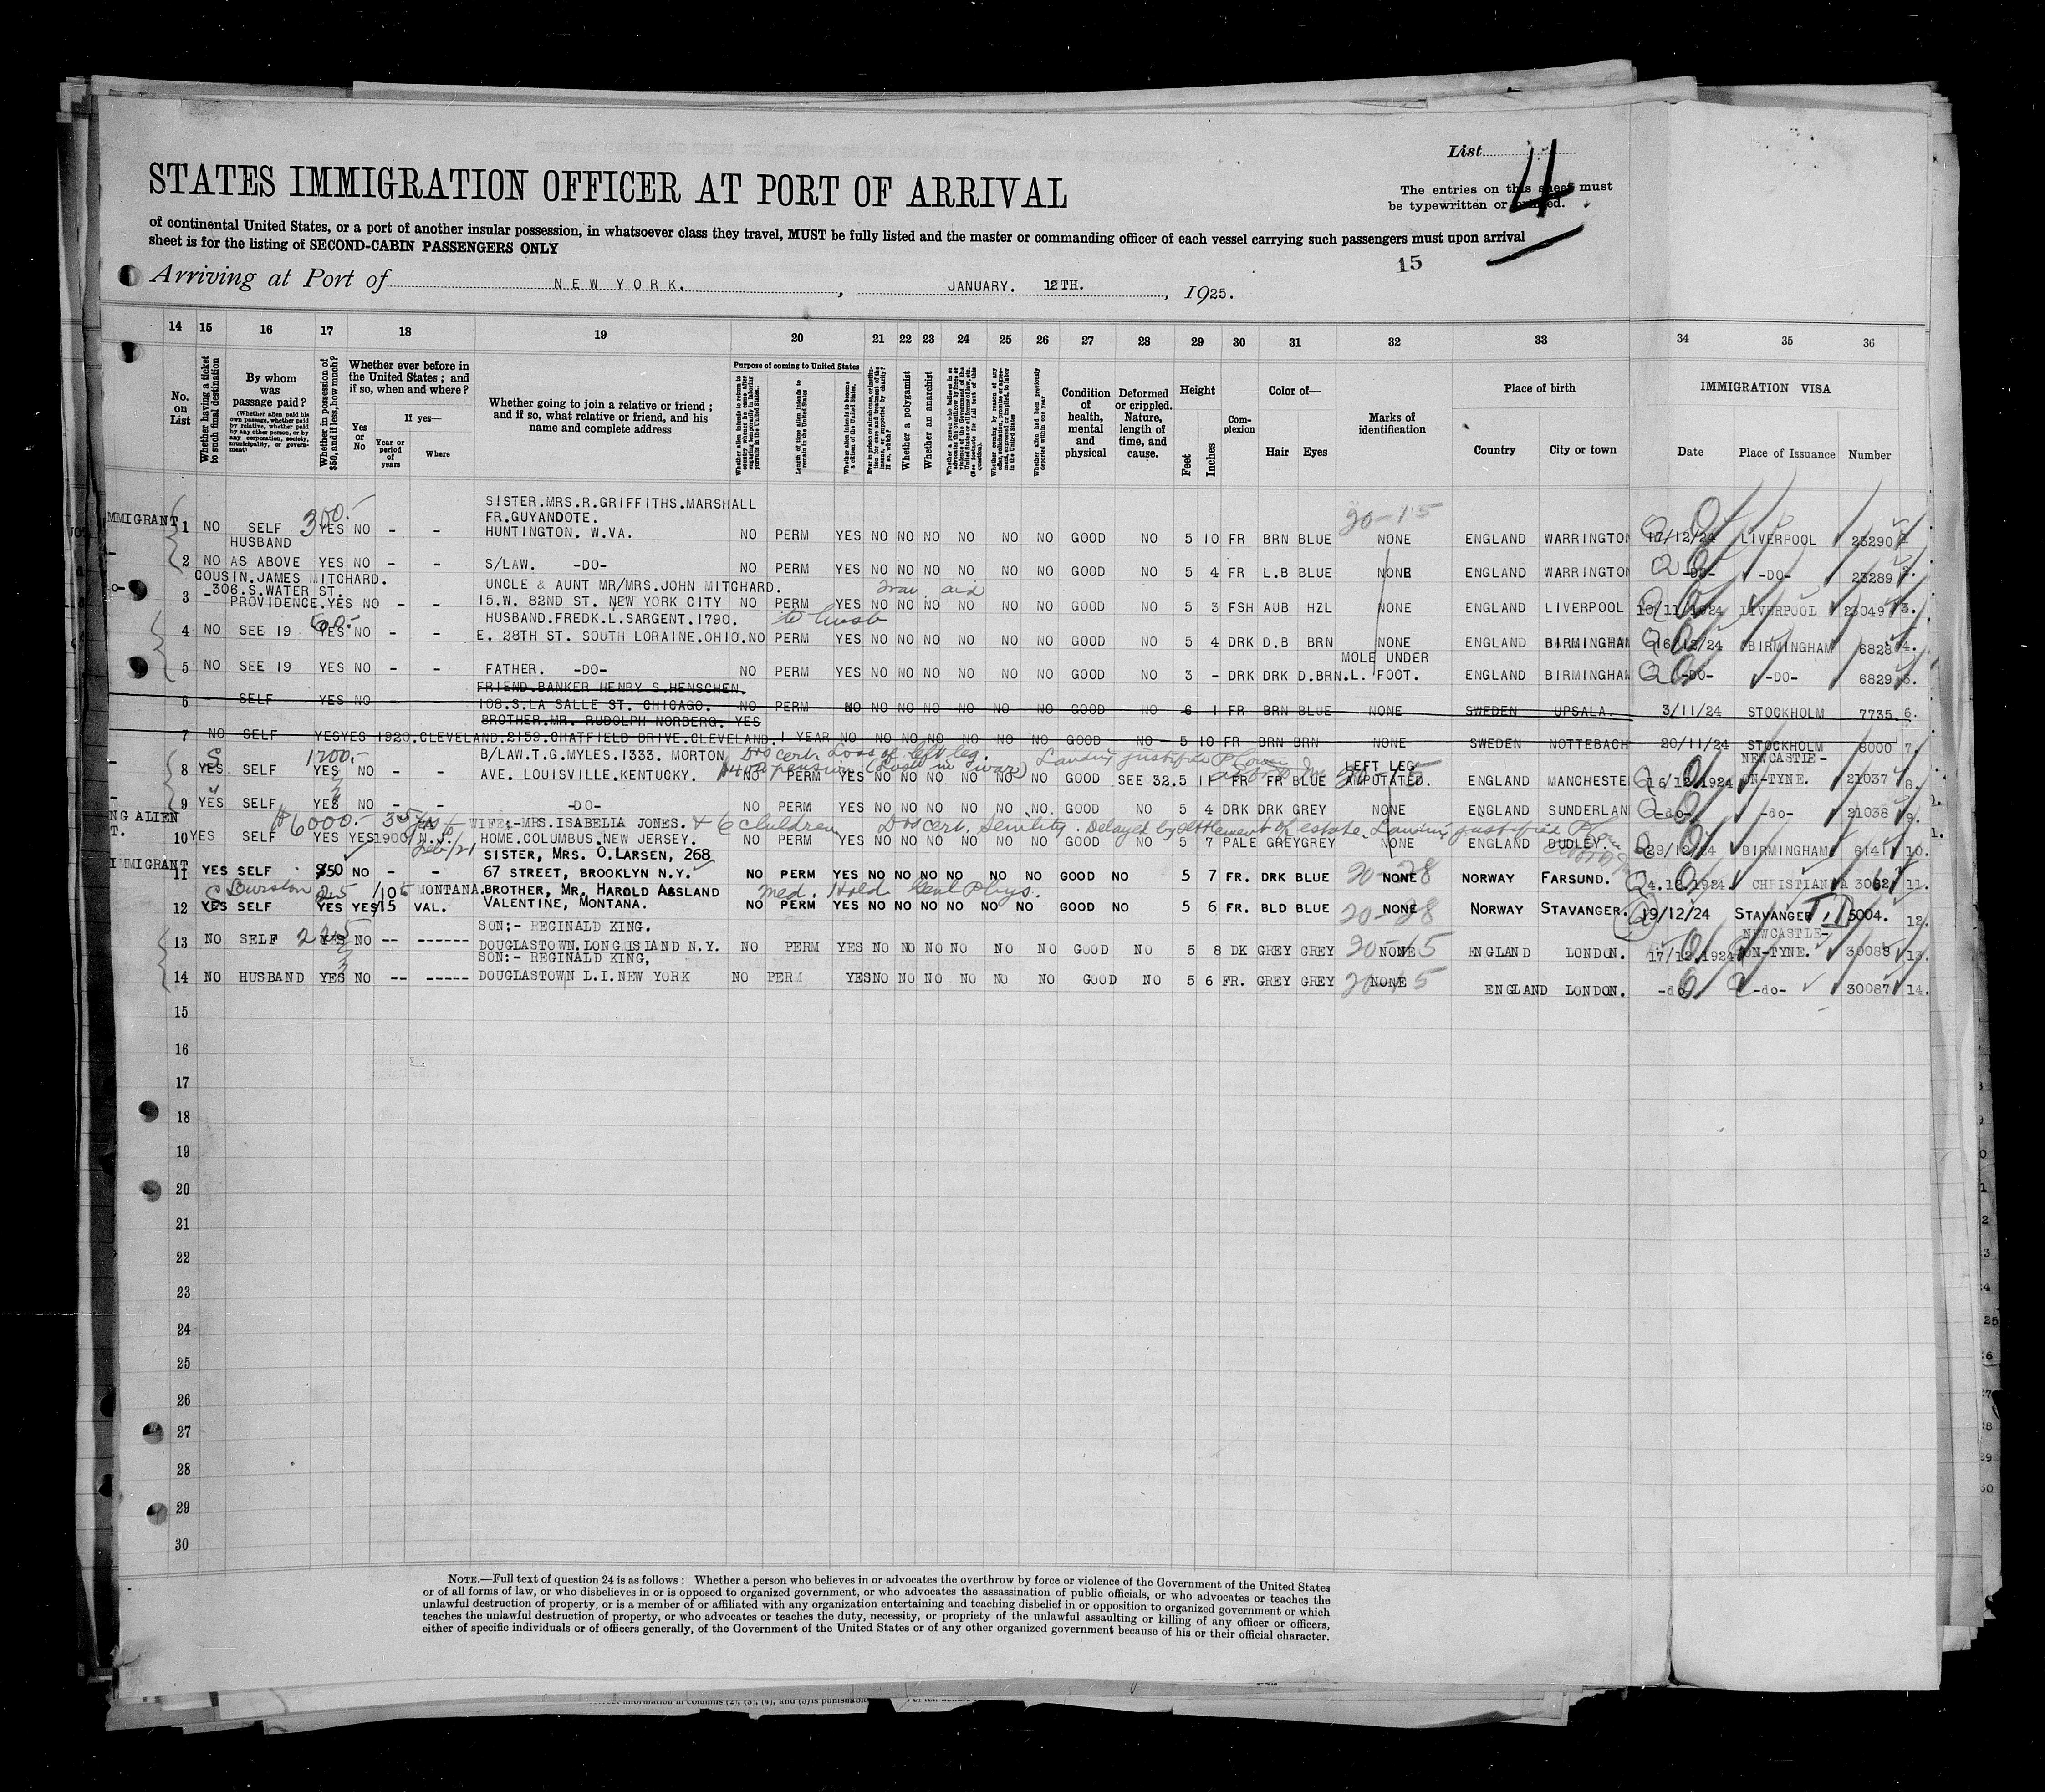 List 4
STATES IMMIGRATION OFFICER AT PORT OF ARRIVAL
The entries on this sheet must
be typewritten or printed.
of continental United States, or a port of another insular possession, in whatsoever class they travel, MUST be fully listed and the master or commanding officer of each vessel carrying such passengers must upon arrival
sheet is for the listing of SECOND-CABIN PASSENGERS ONLY
15
Arriving at Port of NEW YORK. , JANUARY. 12TH. , 1925.
14 15 16 17 18 19 20 21 22 23 24 25 26 27 28 29 30 31 32 33 34 35 36
No. on List
Whether having a ticket to such final destination
By whom was passage paid?
(Whether alien paid his own passage, whether paid by relative, whether paid by any other person, or by any corporation, society, municipality, or government)
Whether in possession of $50, and if less, how much?
Whether ever before in the United States; and if so, when and where?
If yes—
Yes or No
Year or period of years
Where
Whether going to join a relative or friend; and if so, what relative or friend, and his name and complete address
Purpose of coming to United States
Length of time alien intends to remain in the United States
Whether alien intends to become a citizen of the United States
Whether a polygamist
Whether an anarchist
Condition of health, mental and physical
Deformed or crippled. Nature, length of time, and cause.
Height
Feet Inches
Complexion
Color of—
Hair Eyes
Marks of identification
Place of birth
Country City or town
IMMIGRATION VISA
Date Place of Issuance Number
SISTER.MRS.R.GRIFFITHS.MARSHALL
300.- FR.GUYANDOTE. 20-15
MMIGRANT 1 NO SELF YES NO - - HUNTINGTON. W.VA. NO PERM YES NO NO NO NO NO NO GOOD NO 5 10 FR BRN BLUE NONE ENGLAND WARRINGTON 17/12/24 LIVERPOOL 23290
HUSBAND
2 NO AS ABOVE YES NO S/LAW. -DO- NO PERM YES NO NO NO NO NO NO GOOD NO 5 4 FR L.B BLUE NONE ENGLAND WARRINGTON -DO- -DO- 23289
COUSIN.JAMES MITCHARD. UNCLE & AUNT MR/MRS.JOHN MITCHARD. Trav. aid
3 306.S.WATER ST. PROVIDENCE. YES NO - - 15.W. 82ND ST. NEW YORK CITY NO PERM YES NO NO NO NO NO NO GOOD NO 5 3 FSH AUB HZL NONE ENGLAND LIVERPOOL 10/11/1924 LIVERPOOL 23049 3.
60.- HUSBAND.FREDK.L.SARGENT.1790. to husb
4 NO SEE 19 YES NO - - E. 28TH ST. SOUTH LORAINE.OHIO. NO PERM YES NO NO NO NO NO NO GOOD NO 5 4 DRK D.B BRN NONE ENGLAND BIRMINGHAM 16/12/24 BIRMINGHAM 6828 4.
MOLE UNDER
5 NO SEE 19 YES NO - - FATHER. -DO- NO PERM YES NO NO NO NO NO NO GOOD NO 3 - DRK DRK D.BRN. L. FOOT. ENGLAND BIRMINGHAM -DO- -DO- 6829 5.
FRIEND.BANKER HENRY S.HENSCHEN.
6 - SELF YES NO 108.S.LA SALLE ST. CHICAGO. NO PERM NO NO NO NO NO NO NO GOOD NO 6 1 FR BRN BLUE NONE SWEDEN UPSALA. 3/11/24 STOCKHOLM 7735 6.
BROTHER.MR. RUDOLPH NORBERG. YES
7 NO SELF YES YES 1920.CLEVELAND.2159.CHATFIELD DRIVE.CLEVELAND. 1 YEAR NO NO NO NO NO NO NO GOOD NO 5 10 FR BRN BRN NONE SWEDEN NOTTEBACH 20/11/24 STOCKHOLM 8000 7.
S 1200.- B/LAW.T.G.MYLES.1333. MORTON Drs cert. Loss of left leg. (Lost in war) Landing justified LEFT LEG NEWCASTLE-
8 YES SELF YES NO - - AVE. LOUISVILLE.KENTUCKY. NO PERM YES NO NO NO NO NO NO GOOD SEE 32. 5 11 FR FR BLUE AMPUTATED. ENGLAND MANCHESTE 16/12/1924 ON-TYNE. 21037 8.
9 YES SELF YES NO - - -DO- NO PERM YES NO NO NO NO NO NO. GOOD NO 5 4 DRK DRK GREY NONE ENGLAND SUNDERLAN -do- -do- 21038 9.
NG ALIEN $6000.- 35 yrs to WIFE;-MRS.ISABELIA JONES. & 6 children Drs cert. Senility. Delayed by settlement of estate. Landing justified
T. 10 YES SELF YES YES 1900/ N.Y. HOME.COLUMBUS.NEW JERSEY. NO PERM YES NO NO NO NO NO NO GOOD NO 5 7 PALE GREY GREY NONE ENGLAND DUDLEY. 29/12/24 BIRMINGHAM 6141 10.
SISTER, MRS. O.LARSEN, 268
IMMIGRANT 11 YES SELF $50 NO - - 67 STREET, BROOKLYN N.Y. NO PERM YES NO NO NO NO NO NO GOOD NO 5 7 FR. DRK BLUE 20-28 NONE NORWAY FARSUND. CHRISTIANIA 11.
S 25 /10 MONTANA. BROTHER, MR. HAROLD AASLAND Med. Hold. Genl Phys.
12 YES SELF YES YES/15 VAL. VALENTINE, MONTANA. NO PERM YES NO NO NO NO NO NO GOOD NO 5 6 FR. BLD BLUE 20-28 NONE NORWAY STAVANGER. 19/12/24 STAVANGER 5004. 12.
225 SON;- REGINALD KING. NEWCASTLE-
13 NO SELF YES NO -- ------ DOUGLASTOWN.LONG ISIAND N.Y. NO PERM YES NO NO NO NO NO NO GOOD NO 5 8 DK GREY GREY 20-15 NONE ENGLAND LONDON. 17/12/1924 ON-TYNE. 30088 13.
SON:- REGINALD KING,
14 NO HUSBAND YES NO -- ----- DOUGLASTOWN L.I.NEW YORK NO PERM YES NO NO NO NO NO NO GOOD NO 5 6 FR. GREY GREY 20-15 NONE ENGLAND LONDON. -do- -do- 30087 14.
15
16
17
18
19
20
21
22
23
24
25
26
27
28
29
30
NOTE.—Full text of question 24 is as follows: Whether a person who believes in or advocates the overthrow by force or violence of the Government of the United States
or of all forms of law, or who disbelieves in or is opposed to organized government, or who advocates the assassination of public officials, or who advocates or teaches the
unlawful destruction of property, or is a member of or affiliated with any organization entertaining and teaching disbelief in or opposition to organized government or which
teaches the unlawful destruction of property, or who advocates or teaches the duty, necessity, or propriety of the unlawful assaulting or killing of any officer or officers,
either of specific individuals or of officers generally, of the Government of the United States or of any other organized government because of his or their official character.